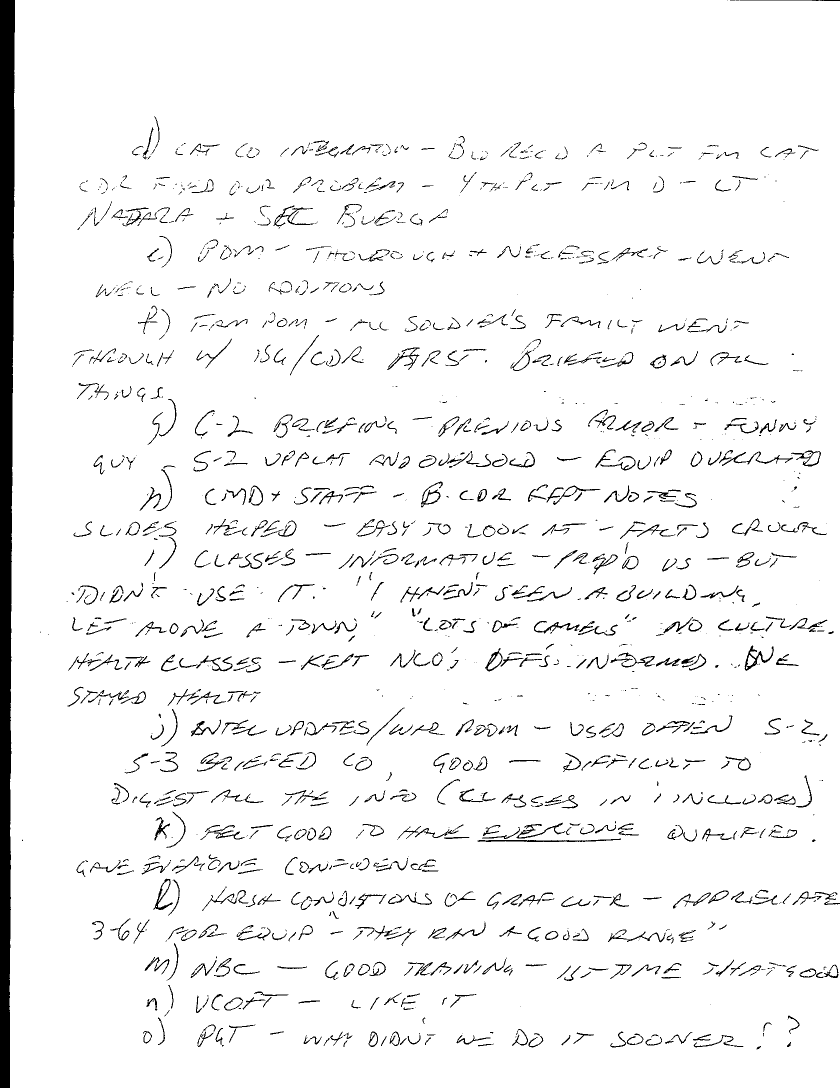 d) CAT CO INTEGRATION – B CO REC'D A PLT FM CAT
CDR FIXED OUR PROBLEM – 4TH PLT FM D – LT
+ BUERGA
e) POM – THOUROUGH + NECESSARY – WENT
WELL – NO ADDITIONS
f) FAM POM – ALL SOLDIER'S FAMILY WENT
THROUGH W/ 1SG/CDR FIRST. BRIEFED ON ALL
THINGS
g) G-2 BRIEFING – PREVIOUS ARMOR – FUNNY
GUY – S-2 AND OVERSOLD – EQUIP OVERRATED
h) CMD + STAFF – B. CDR KEPT NOTES
SLIDES HELPED – EASY TO LOOK AT – FACTS CRUCIAL
i) CLASSES – INFORMATIVE – PREP'D US – BUT
DIDN'T USE IT. "I HAVEN'T SEEN A BUILDING,
LET ALONE A TOWN," "LOTS OF CAMELS" NO CULTURE.
HEALTH CLASSES – KEPT NCO'S, OFF'S INFORMED. WE
STAYED HEALTHY
j) INTEL UPDATES/WAR ROOM – USED OFTEN S-2,
S-3 BRIEFED CO, GOOD – DIFFICULT TO
DIGEST ALL THE INFO (CLASSES IN i INCLUDED)
k) FELT GOOD TO HAVE EVERYONE QUALIFIED.
GAVE EVERYONE CONFIDENCE
l) HARSH CONDITIONS OF GRAF – APPRECIATE
3-64 FOR EQUIP – "THEY RAN A GOOD RANGE"
m) NBC – GOOD TRAINING – 1ST TIME THAT GOOD
n) UCOFT – LIKE IT
o) PGT – WHY DIDN'T WE DO IT SOONER!?